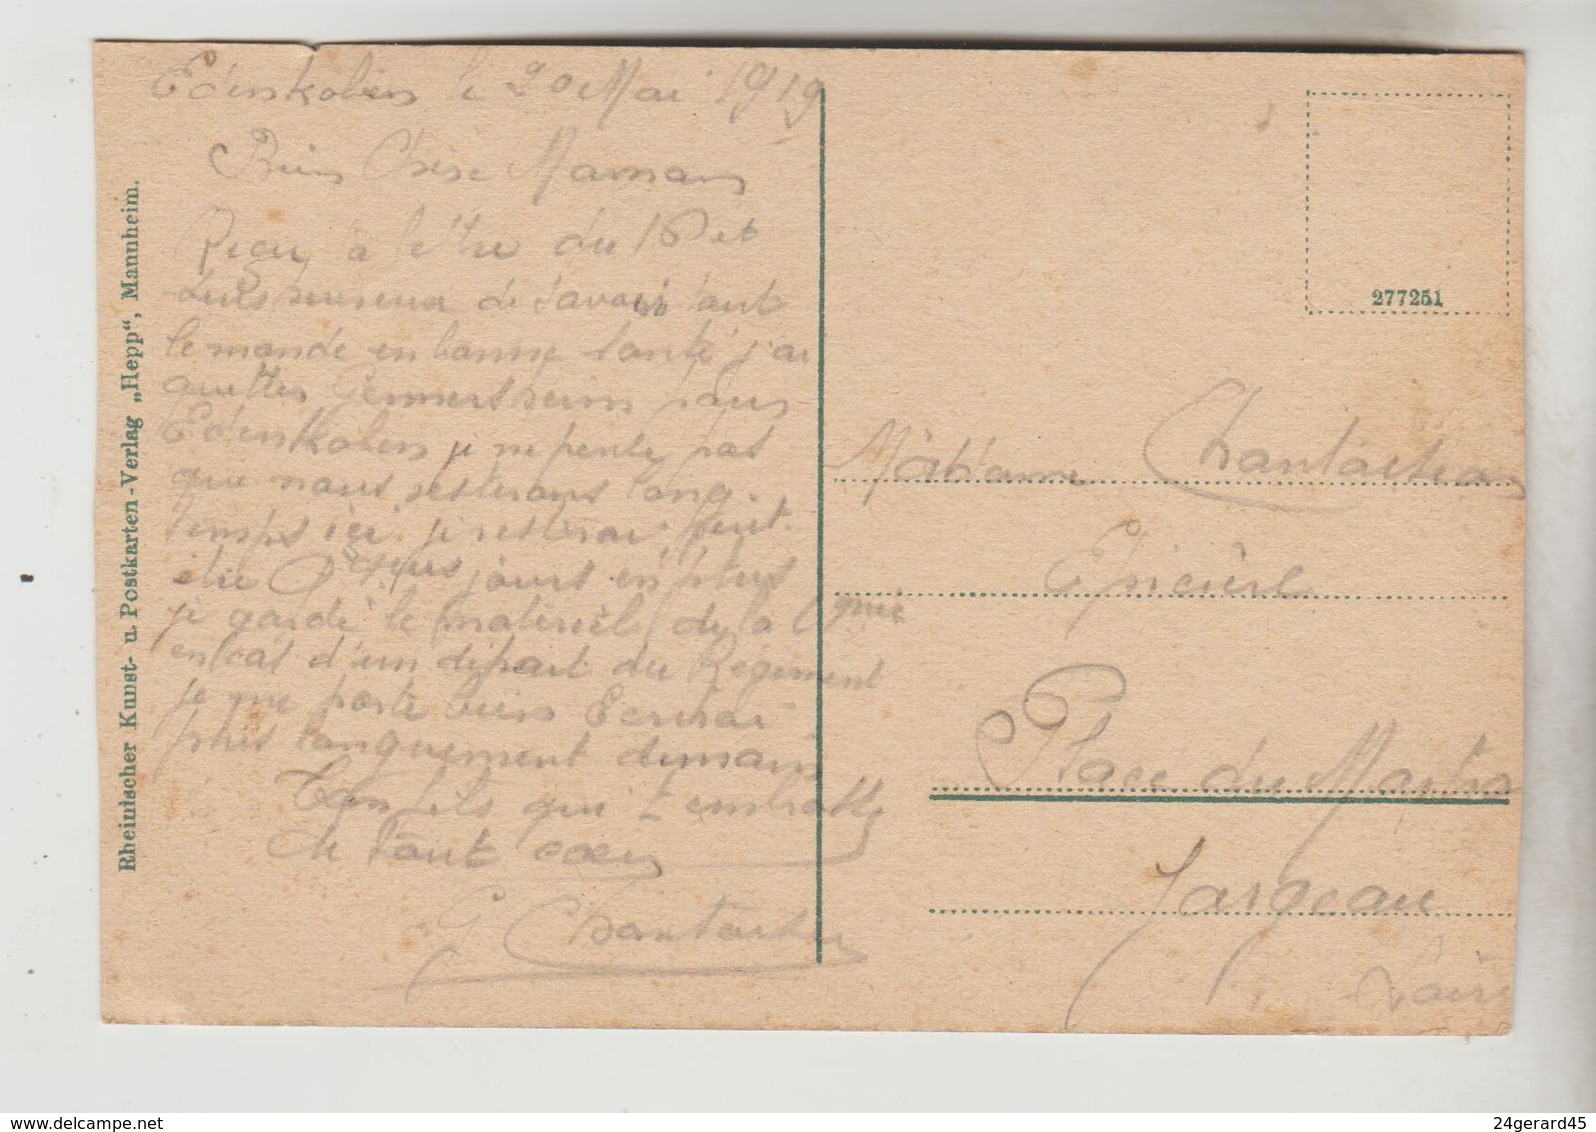 Edenkoben le 20 Mai 1919
Bien Chère Maman
Reçu ta lettre du 16 et
suis heureux de savoir tout
le monde en bonne santé j'ai
quitter Germersheim pour
Edenkoben je ne pense pas
que nous resterons long-
temps ici je resterai peut
etre jours en plus
je garde le materiel de la Cgnie
en cas d'un départ du Régiment
je me porte bien Ecrirai
plus longuement demain
Ton fils qui t embrasse
de tout coeur
G Chantoiseau
Madame Chantoiseau
Epicière
Place du Martroi
Jargeau
Loire
277251
Rheinischer Kunst- u. Postkarten-Verlag „Hepp“, Mannheim.
www.delcampe.net
24gerard45